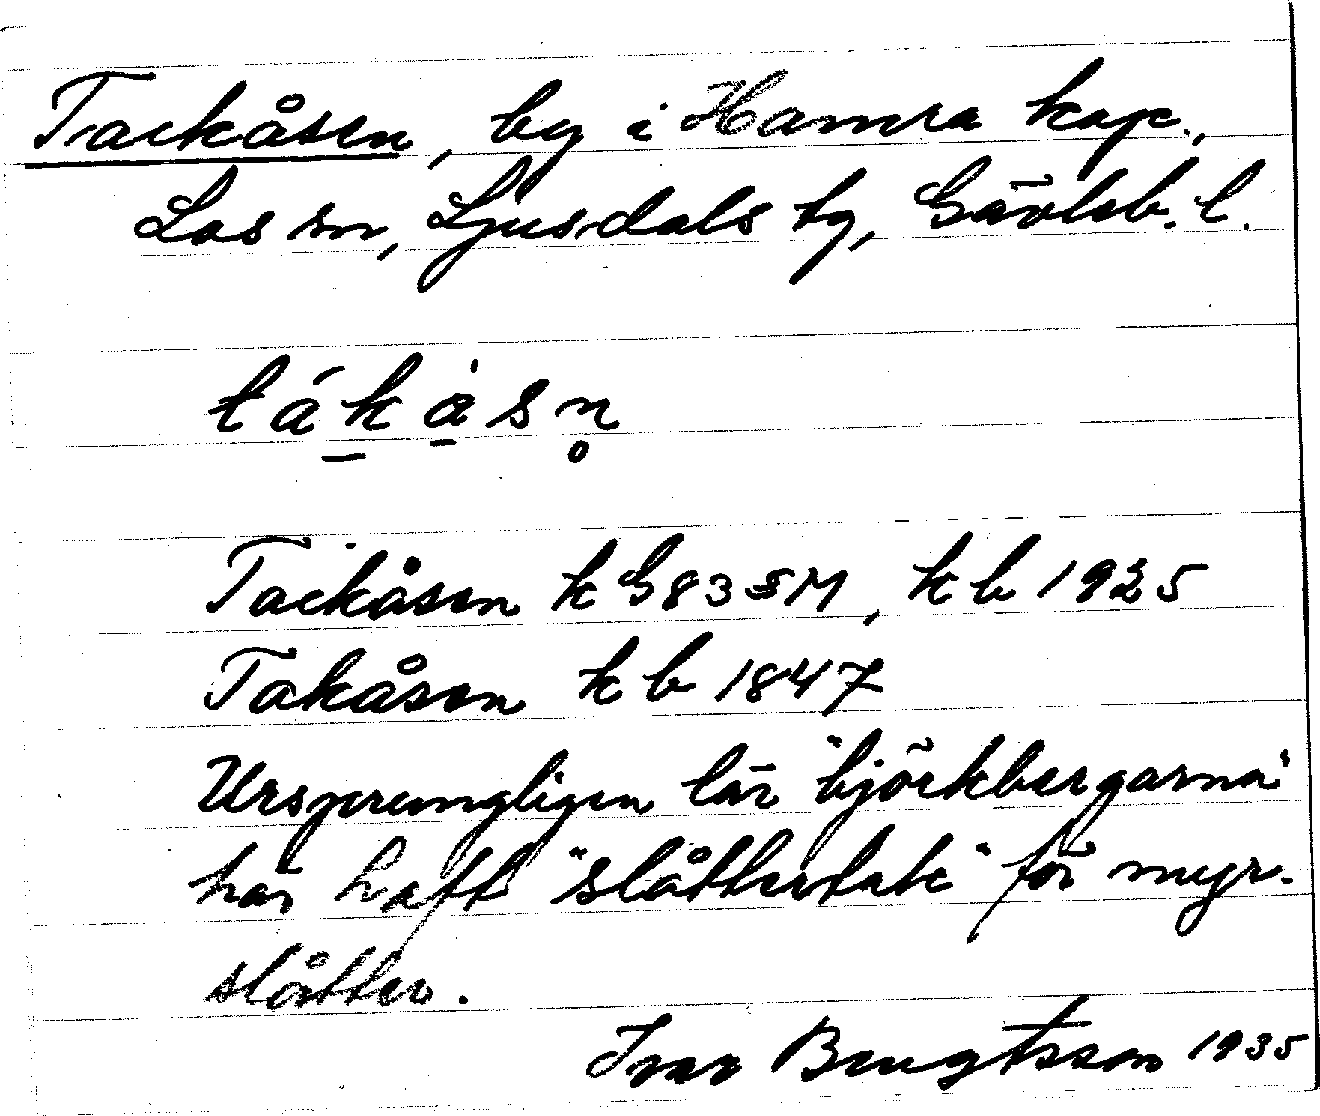 Tackåsen, by i Hamra kap.,
Los sn, Ljusdals tg, Gävleb. l.
tákàsn̥
Tackåsen k G83SM, kb 1925
Takåsen kb 1847
Ursprungligen lär "björkbergarna"
här haft "slåttertäkt" för myr-
slåtter.
Ivar Bengtsson 1935